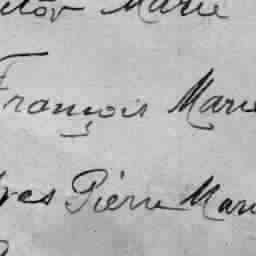 Marie
François Marie
Pierre Marie